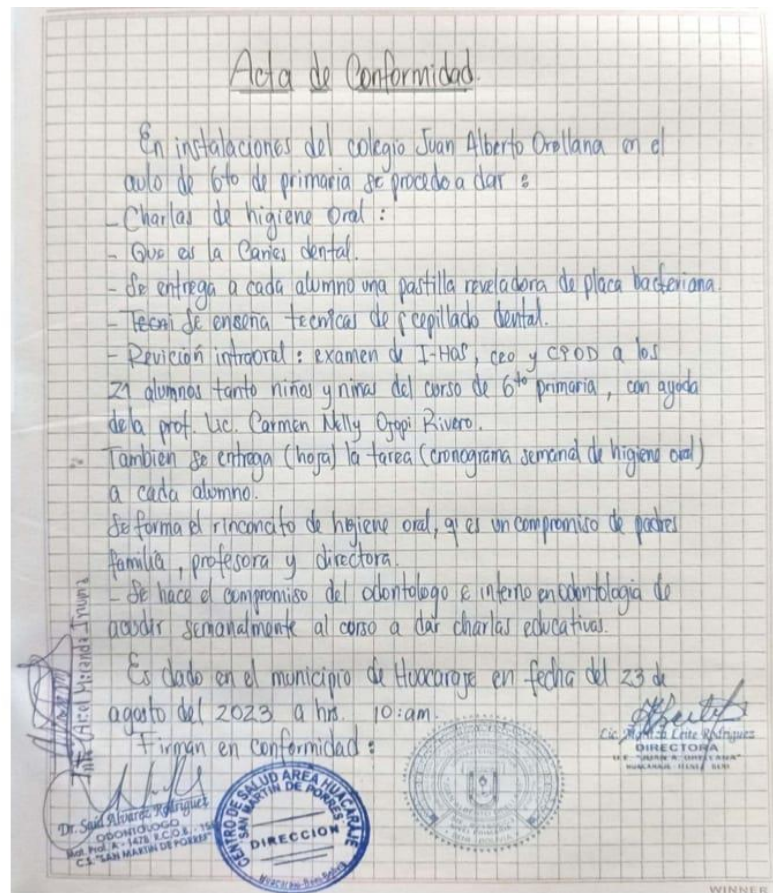 Acta de Conformidad.
En instalaciones del colegio Juan Alberto Orellana en el
aula de 6to de primaria se procedo a dar :
- Charlas de higiene Oral :
- Que es la Caries dental.
- Se entrega a cada alumno una pastilla reveladora de placa bacteriana.
- Tecni Se enseña tecnicas de cepillado dental.
- Revición intraoral : examen de I-HOS, ceo y CPOD a los
21 alumnos tanto niños y ninas del curso de 6to primaria, con ayuda
dela prof. Lic. Carmen Nelly Ojopi Rivero.
Tambien se entrega (hoja) la tarea (cronograma semanal de higiene oral)
a cada alumno.
Se forma el rinconcito de higiene oral, q' es un compromiso de padres
familia, profesora y directora.
- Se hace el compromiso del odontologo e interno en odontologia de
acudir semanalmente al curso a dar charlas educativas.
Es dado en el municipio de Huacaraje en fecha del 23 de
agosto del 2023 a hrs. 10:am.
Firman en conformidad :
Miranda
Lic. Leite Rodriguez
DIRECTORA
U.E. "JUAN A. ORELLANA"
Dr. Said Alvarez Rodriguez
ODONTOLOGO
Mat. Prof. A - 1478 R.C.O.B. -
C.S. "SAN MARTIN DE PORRES"
CENTRO DE SALUD AREA HUACARAJE
"SAN MARTIN DE PORRES"
DIRECCION
Huacaraje-Beni-Bolivia
WINNER